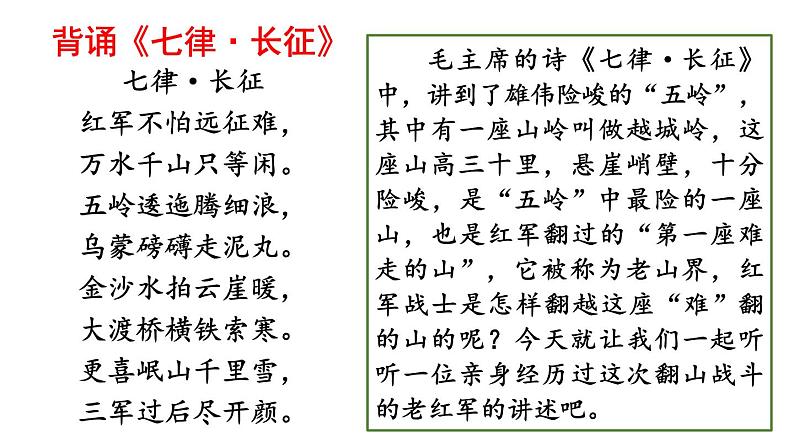 背诵《七律·长征》
七律·长征
红军不怕远征难，
万水千山只等闲。
五岭逶迤腾细浪，
乌蒙磅礴走泥丸。
金沙水拍云崖暖，
大渡桥横铁索寒。
更喜岷山千里雪，
三军过后尽开颜。
毛主席的诗《七律·长征》
中，讲到了雄伟险峻的“五岭”，
其中有一座山岭叫做越城岭，这
座山高三十里，悬崖峭壁，十分
险峻，是“五岭”中最险的一座
山，也是红军翻过的“第一座难
走的山”，它被称为老山界，红
军战士是怎样翻越这座“难”翻
的山的呢？今天就让我们一起听
听一位亲身经历过这次翻山战斗
的老红军的讲述吧。